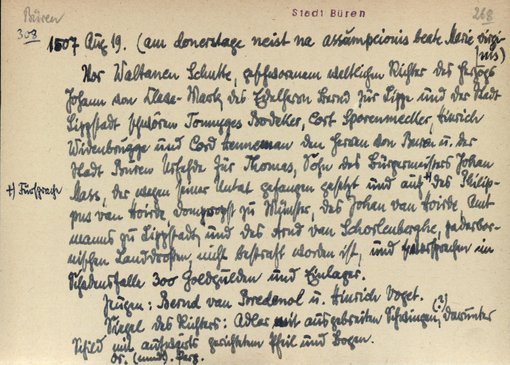 Büren
Stadt Büren
268
308
1507 Aug 19. (am donerstage neist na assumpcionis beate Marie virgi-
nis)
Vor Waltanen Schutte, geschworenem weltlichen Richter des Herzogs
Johann von Cleve-Mark, des Edelherrn Bernd zur Lippe und der Stadt
Lippstadt schwören Tonnyges Bodeker, Cort Sporenmecker, Hinrich
Widenbrugge und Cord Henneman den Herren von Buren u. der
Stadt Buren Urfehde für Thomas, Sohn des Bürgermeisters Johan
+) Fürsprache
Mass, der wegen seiner Untat gefangen gesetzt und auf +) des Philip-
pus van Hoirde Domprost zu Münster, des Johan van Hoirde Amt
manns zu Lippstadt und des Arnd van Schorlenberghe, paderbor-
nischen Landdrosten, nicht bestraft worden ist, und versprechen im
Schadensfalle 300 Goldgulden und Einlager.
Zeugen: Bernd van Bredenol u. Hinrich Voget.
Siegel des Richters: Adler mit ausgebreiten Schwingen, (?) darunter
Schild mit aufwärts gerichtetem Pfeil und Bogen.
Or. (mnd). Perg.